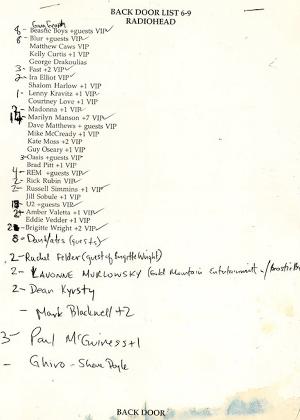 BACK DOOR LIST 6-9
RADIOHEAD
8- Beastie Boys +guests VIP
8- Blur +guests VIP
Matthew Caws VIP
Kelly Curtis +1 VIP
George Drakoulias
3- Fast +2 VIP
2- Ira Elliot VIP
Shalom Harlow +1 VIP
1- Lenny Kravitz +1 VIP
Courtney Love +1 VIP
Madonna +1 VIP
Marilyn Manson +7 VIP
Dave Matthews + guests VIP
Mike McCready +1 VIP
Kate Moss +2 VIP
Guy Oseary +1 VIP
3- Oasis +guests VIP
Brad Pitt +1 VIP
4- REM +guests VIP
2- Rick Rubin VIP
2- Russell Simmins +1 VIP
Jill Sobule +1 VIP
U2 +guests VIP
2- Amber Valetta +1 VIP
Eddie Vedder +1 VIP
Brigitte Wright +2 VIP
8- Dan Yates (guests)
2- Rachel Felder (guest of Brigitte Wright)
2- LAVONNE MURLOWSKY (Gold Mountain Entertainment
2- Dean
- Mark Blackwell +2
3- Paul McGuiness +1
- Ghiro - Shane Doyle
BACK DOOR